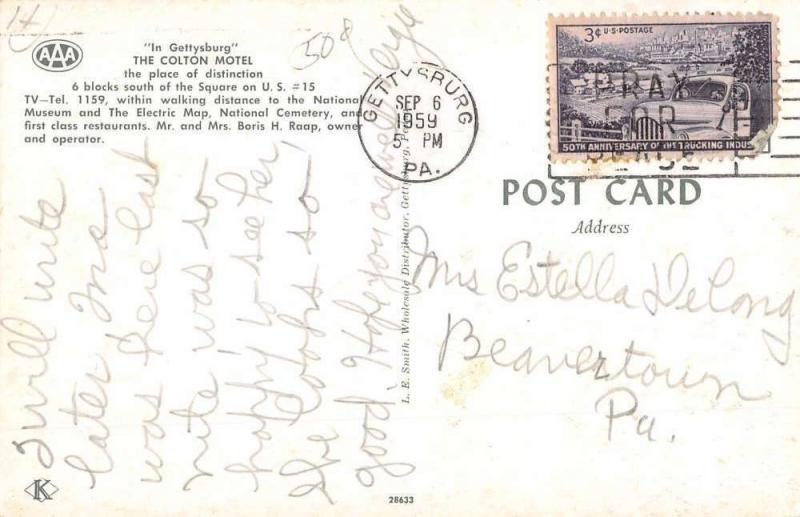 AAA
"In Gettysburg"
THE COLTON MOTEL
the place of distinction
6 blocks south of the Square on U. S. #15
TV—Tel. 1159, within walking distance to the National
Museum and The Electric Map, National Cemetery, and
first class restaurants. Mr. and Mrs. Boris H. Raap, owner
and operator.
508
GETTYSBURG
SEP 6
1959
5 PM
PA.
3¢ U·S·POSTAGE
50TH ANNIVERSARY OF THE TRUCKING INDUS
PRAY
FOR
POST CARD
Address
Mrs Estella DeLong
Beavertown
Pa.
I will write
later Ina
was here last
nite was so
happy to see her,
She looks so
good. Hope you are well
L. E. Smith, Wholesale Distributor, Gettysburg,
K
28633